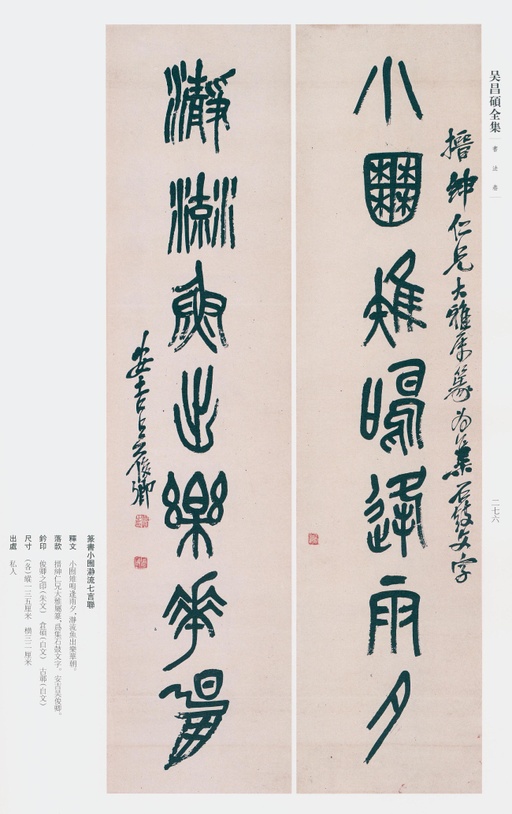 吴昌碩全集
書法卷
二七六
搢紳仁兄大雅属篆為集石鼓文字
小囿雉鳴逢雨夕
瀞流魚出樂華朝
安吉吴俊卿
篆書小囿瀞流七言聯
釋文 小囿雉鳴逢雨夕,瀞流魚出樂華朝。
落款 搢紳仁兄大雅屬篆,爲集石鼓文字。安吉吴俊卿。
鈐印 俊卿之印(朱文) 倉碩(白文) 古鄣(白文)
尺寸 (各)縱一三五厘米 橫三二厘米
出處 私人